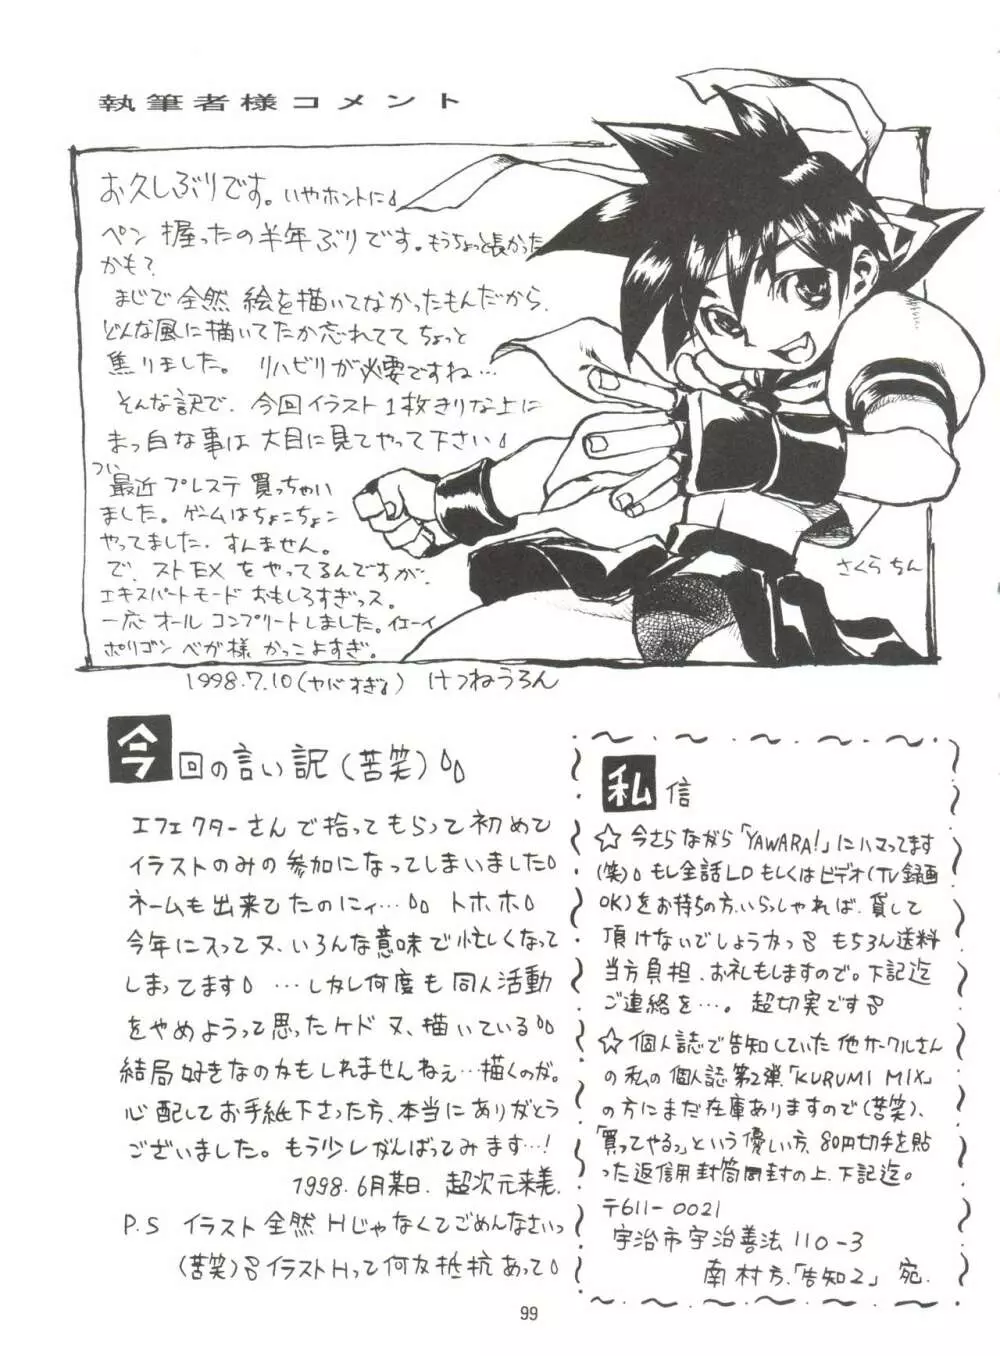 執筆者様コメント
お久しぶりです。いやホントに
ペン握ったの半年ぶりです。もうちょっと長かった
かも?
まじで全然絵を描いてなかったもんだから、
どんな風に描いてたか忘れてて ちょっと
焦りました。リハビリが必要ですね…
そんな訳で、今回イラスト1枚きりな上に
まっ白な事は大目に見てやって下さい
つい
最近プレステ買っちゃい
ました。ゲームはちょこちょこ
やってました、すんません。
で、ストEXをやってるんですが、
エキスパートモードおもしろすぎっス。
一応オールコンプリートしました。イエーイ
ポリゴンベガ様かっこよすぎ。
さくらちん
1998.7.10(ヤバすぎ) けつねうろん
今回の言い訳(苦笑)
エフェクターさんで拾ってもらって初めて
イラストのみの参加になってしまいました
ネームも出来てたのにィ… トホホ
今年に入って又、いろんな意味で忙しくなって
しまってます …しかし何度も同人活動
をやめようって思ったケド又、描いている
結局好きなのかもしれませんねぇ…描くのが。
心配してお手紙下さった方、本当にありがとう
ございました。もう少しがんばってみます…!
1998.6月某日.超次元来美.
P.S イラスト全然Hじゃなくてごめんなさいっ
(苦笑) イラストHって何か抵抗あって
私信
☆今さらながら「YAWARA!」にハマってます
(笑) もし全話LDもしくはビデオ(TV録画
OK)をお持ちの方、いらっしゃれば、貸して
頂けないでしょうかっ もちろん送料
当方負担、お礼もしますので。下記迄
ご連絡を…。超切実です
☆個人誌で告知していた他サークルさん
の私の個人誌第2弾、「KURUMI MIX」
の方にまだ在庫ありますので(苦笑)、
「買ってやるっ」という優しい方、80円切手を貼
った返信用封筒同封の上、下記迄。
〒611-0021
宇治市宇治善法110-3
南村方、「告知2」宛.
99